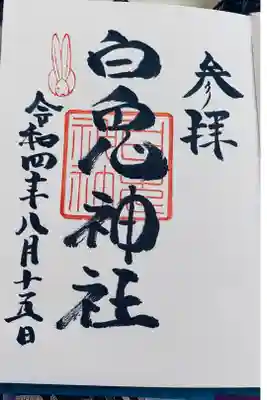 参拝
白兎神社
令和四年八月十五日